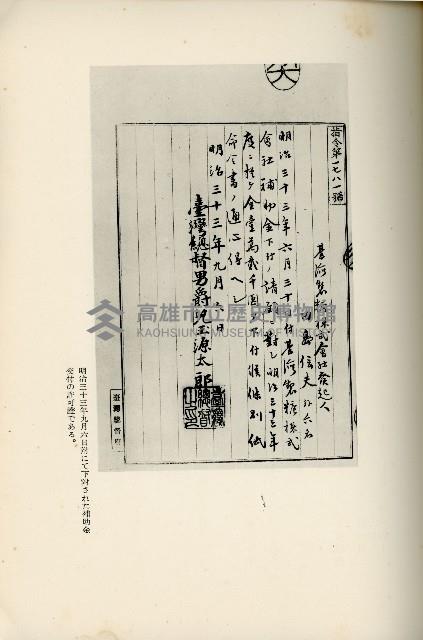 指令第一七八一號
臺灣製糖株式會社發起人
田島信夫外六名
明治三十三年六月三十日付臺灣製糖株式
會社補助金下付ノ請願ニ對シ明治三十三年
度ニ於テ金壹萬貳千圓下付候條別紙
命令書ノ通心得ヘシ
明治三十三年九月 日
臺灣總督男爵兒玉源太郎
臺灣總督之印
臺灣總督府
高雄市立歷史博物館
KAOHSIUNG MUSEUM OF HISTORY
明治三十三年九月六日附にて下附された補助金
交付の許可證である。